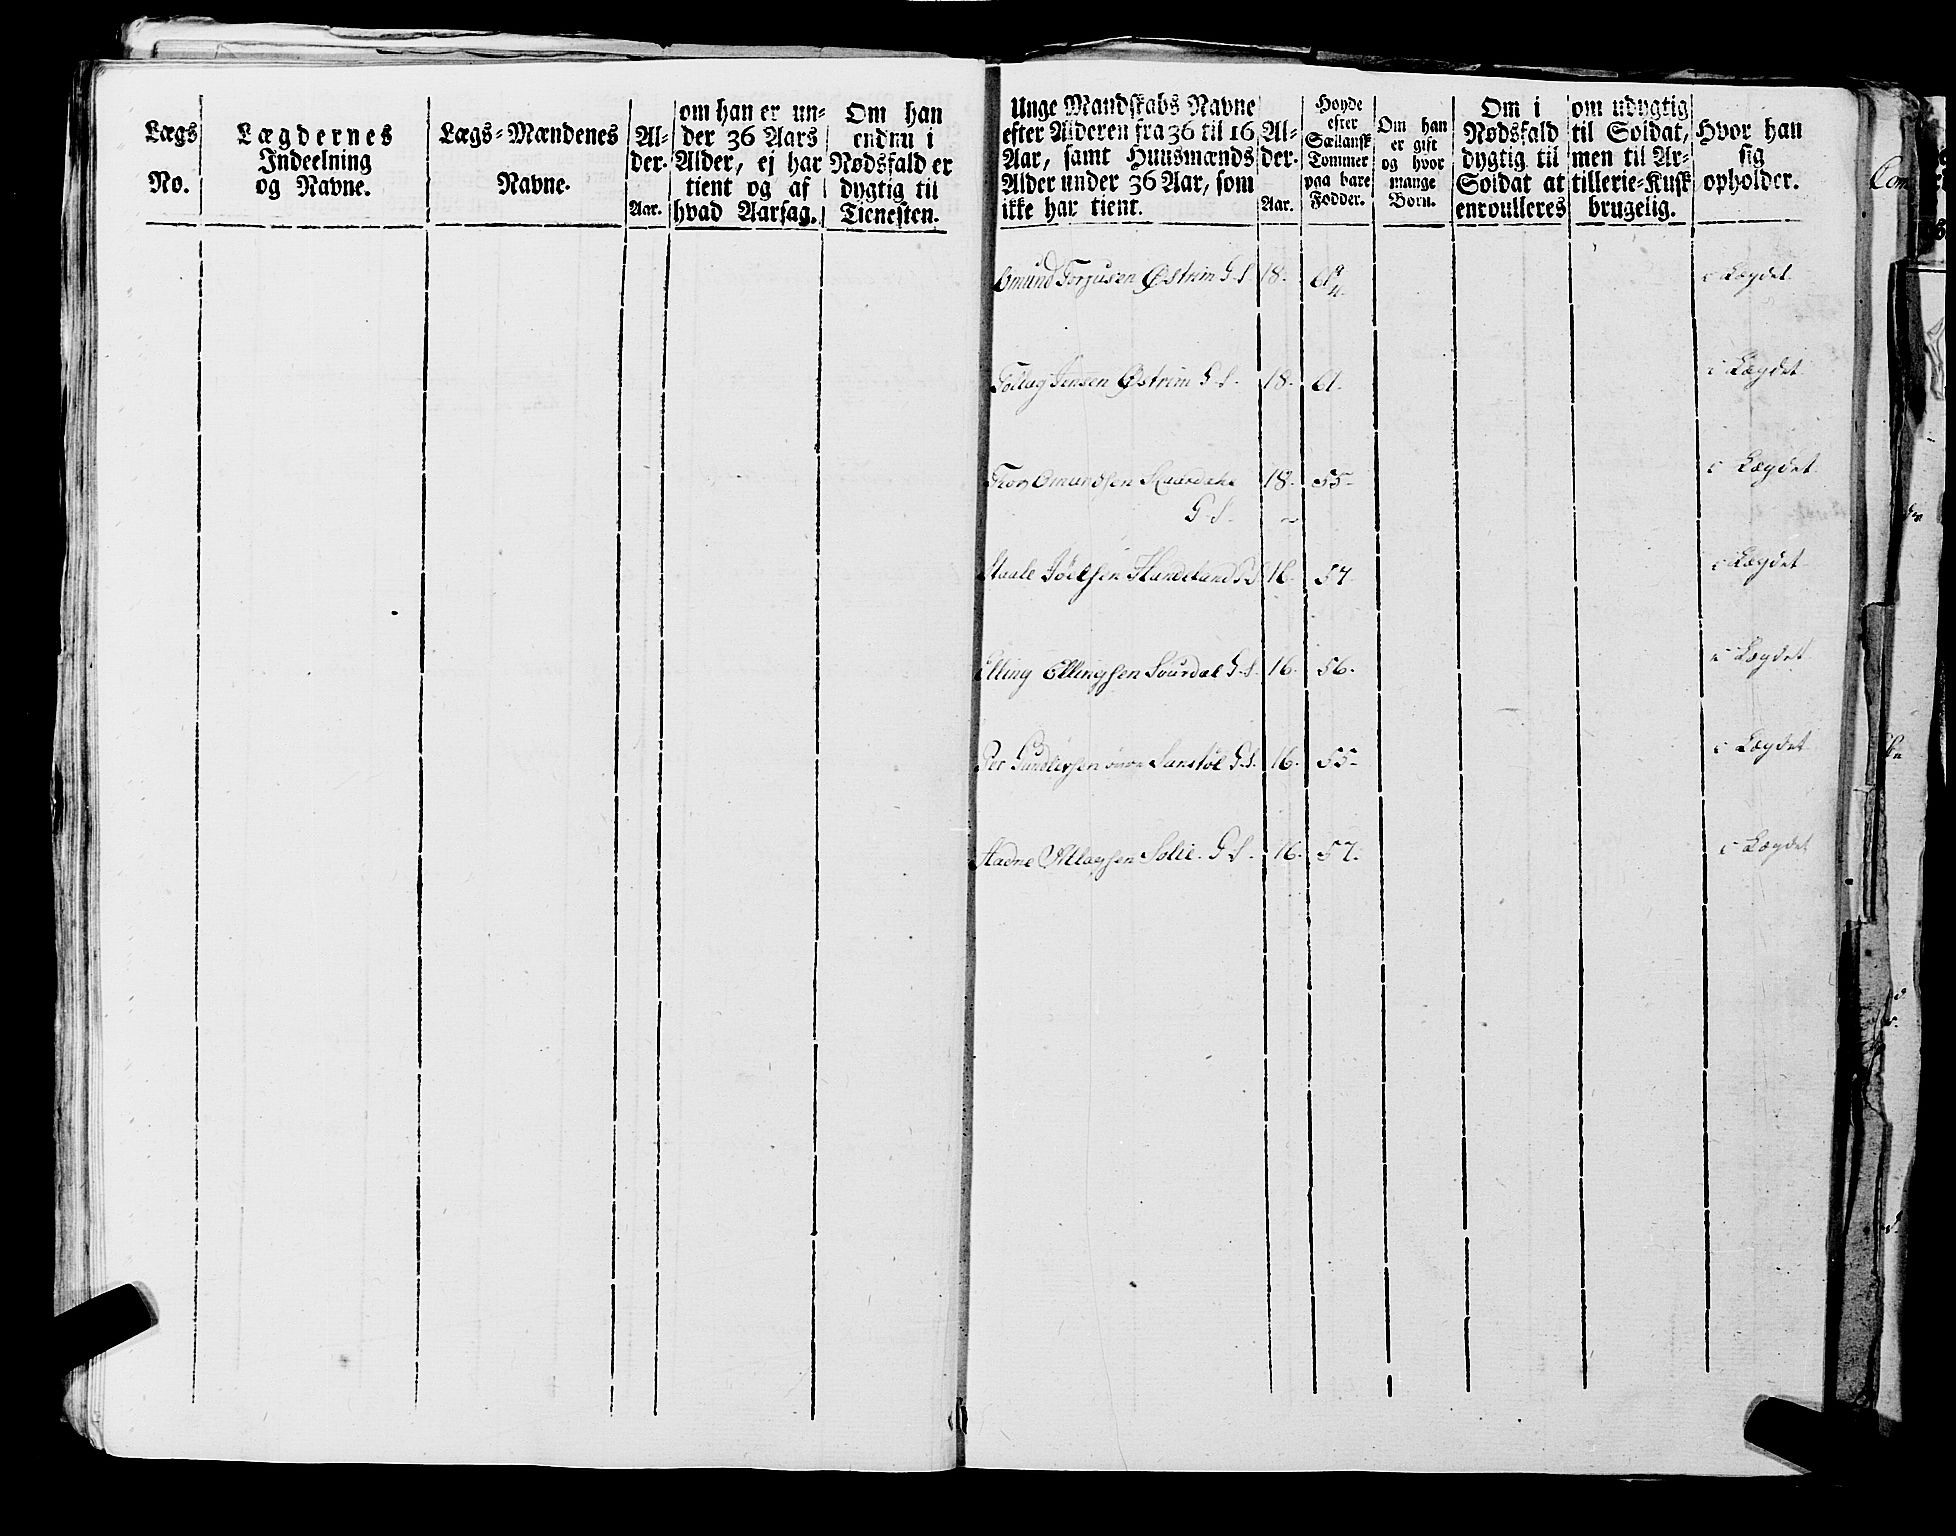 Lægs
No.
Lægdernes
Indeelning
og Navne.
Lægs-Mændenes
Navne.
Al-
der.
Aar.
om han er un-
der 36 Aars
Alder, ej har
tient og af
hvad Aarsag.
Om han
endnu i
Nødsfald er
dygtig til
Tienesten.
Unge Mandskabs Navne
efter Alderen fra 36 til 16
Aar, samt Huusmænds
Alder under 36 Aar, som
ikke har tient.
Al-
der.
Aar.
Høyde
efter
Sællansk
Tommer
paa bare
Fødder.
Om han
er gift
og hvor
mange
Børn.
Om i
Nødsfald
dygtig til
Soldat at
enroulleres
om udygtig
til Soldat,
men til Ar-
tillerie-Kusk
brugelig.
Hvor han
sig
opholder.
Omund Torjusen Østrim G.S. 18. 61 i Lægdet
Tollag Jensen Østrim G.S. 18. 61. i Lægdet
Omundsen 18. 55 i Lægdet
G.S.
Staale Joelsen Handeland G.S. 16. 57 i Lægdet
Elling Ellingsen G.S. 16. 56. i Lægdet
Per Gundersen G.S. 16. 55 i Lægdet
Aadne Solie. G.S. 16. 57. i Lægdet